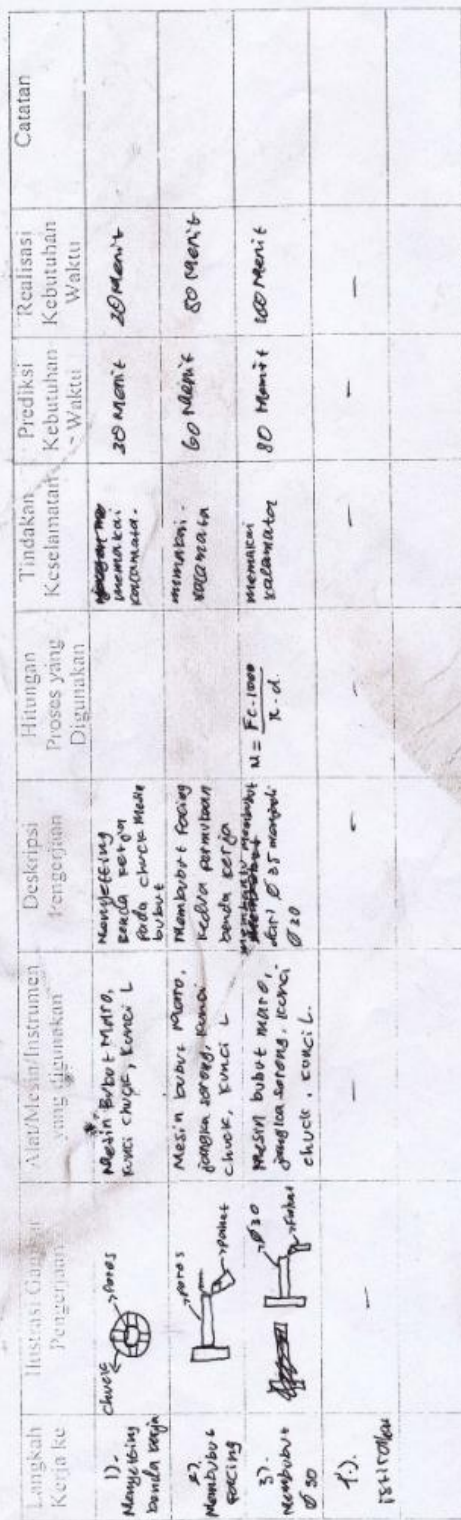 Langkah
Kerja ke
Ilustrasi Gambar
Pengerjaan
Alat/Mesin/Instrumen
yang digunakan
Deskripsi
Pengerjaan
Hitungan
Proses yang
Digunakan
Tindakan
Keselamatan
Prediksi
Kebutuhan
- Waktu
Realisasi
Kebutuhan
Waktu
Catatan
1).
Menyetting
benda kerja
chuck
poros
Mesin Bubut Maro,
kunci chuck, kunci L
Menyetting
benda kerja
pada chuck
bubut
memakai
kacamata.
30 Menit
20 Menit
2).
Membubut
Facing
poros
pahat
Mesin bubut Maro,
jangka sorong, kunci
chuck, kunci L
Membubut Facing
kedua permukaan
benda kerja
memakai.
kacamata
60 Menit
50 Menit
3).
Membubut
Ø 30
Ø 30
Pahat
Mesin bubut maro,
jangka sorong, kunci
chuck, kunci L.
membubut
dari Ø 35 menjadi
Ø 30
N = Fc.1000
π.d.
memakai
kacamata
80 Menit
100 Menit
istirahat
—
—
—
—
—
—